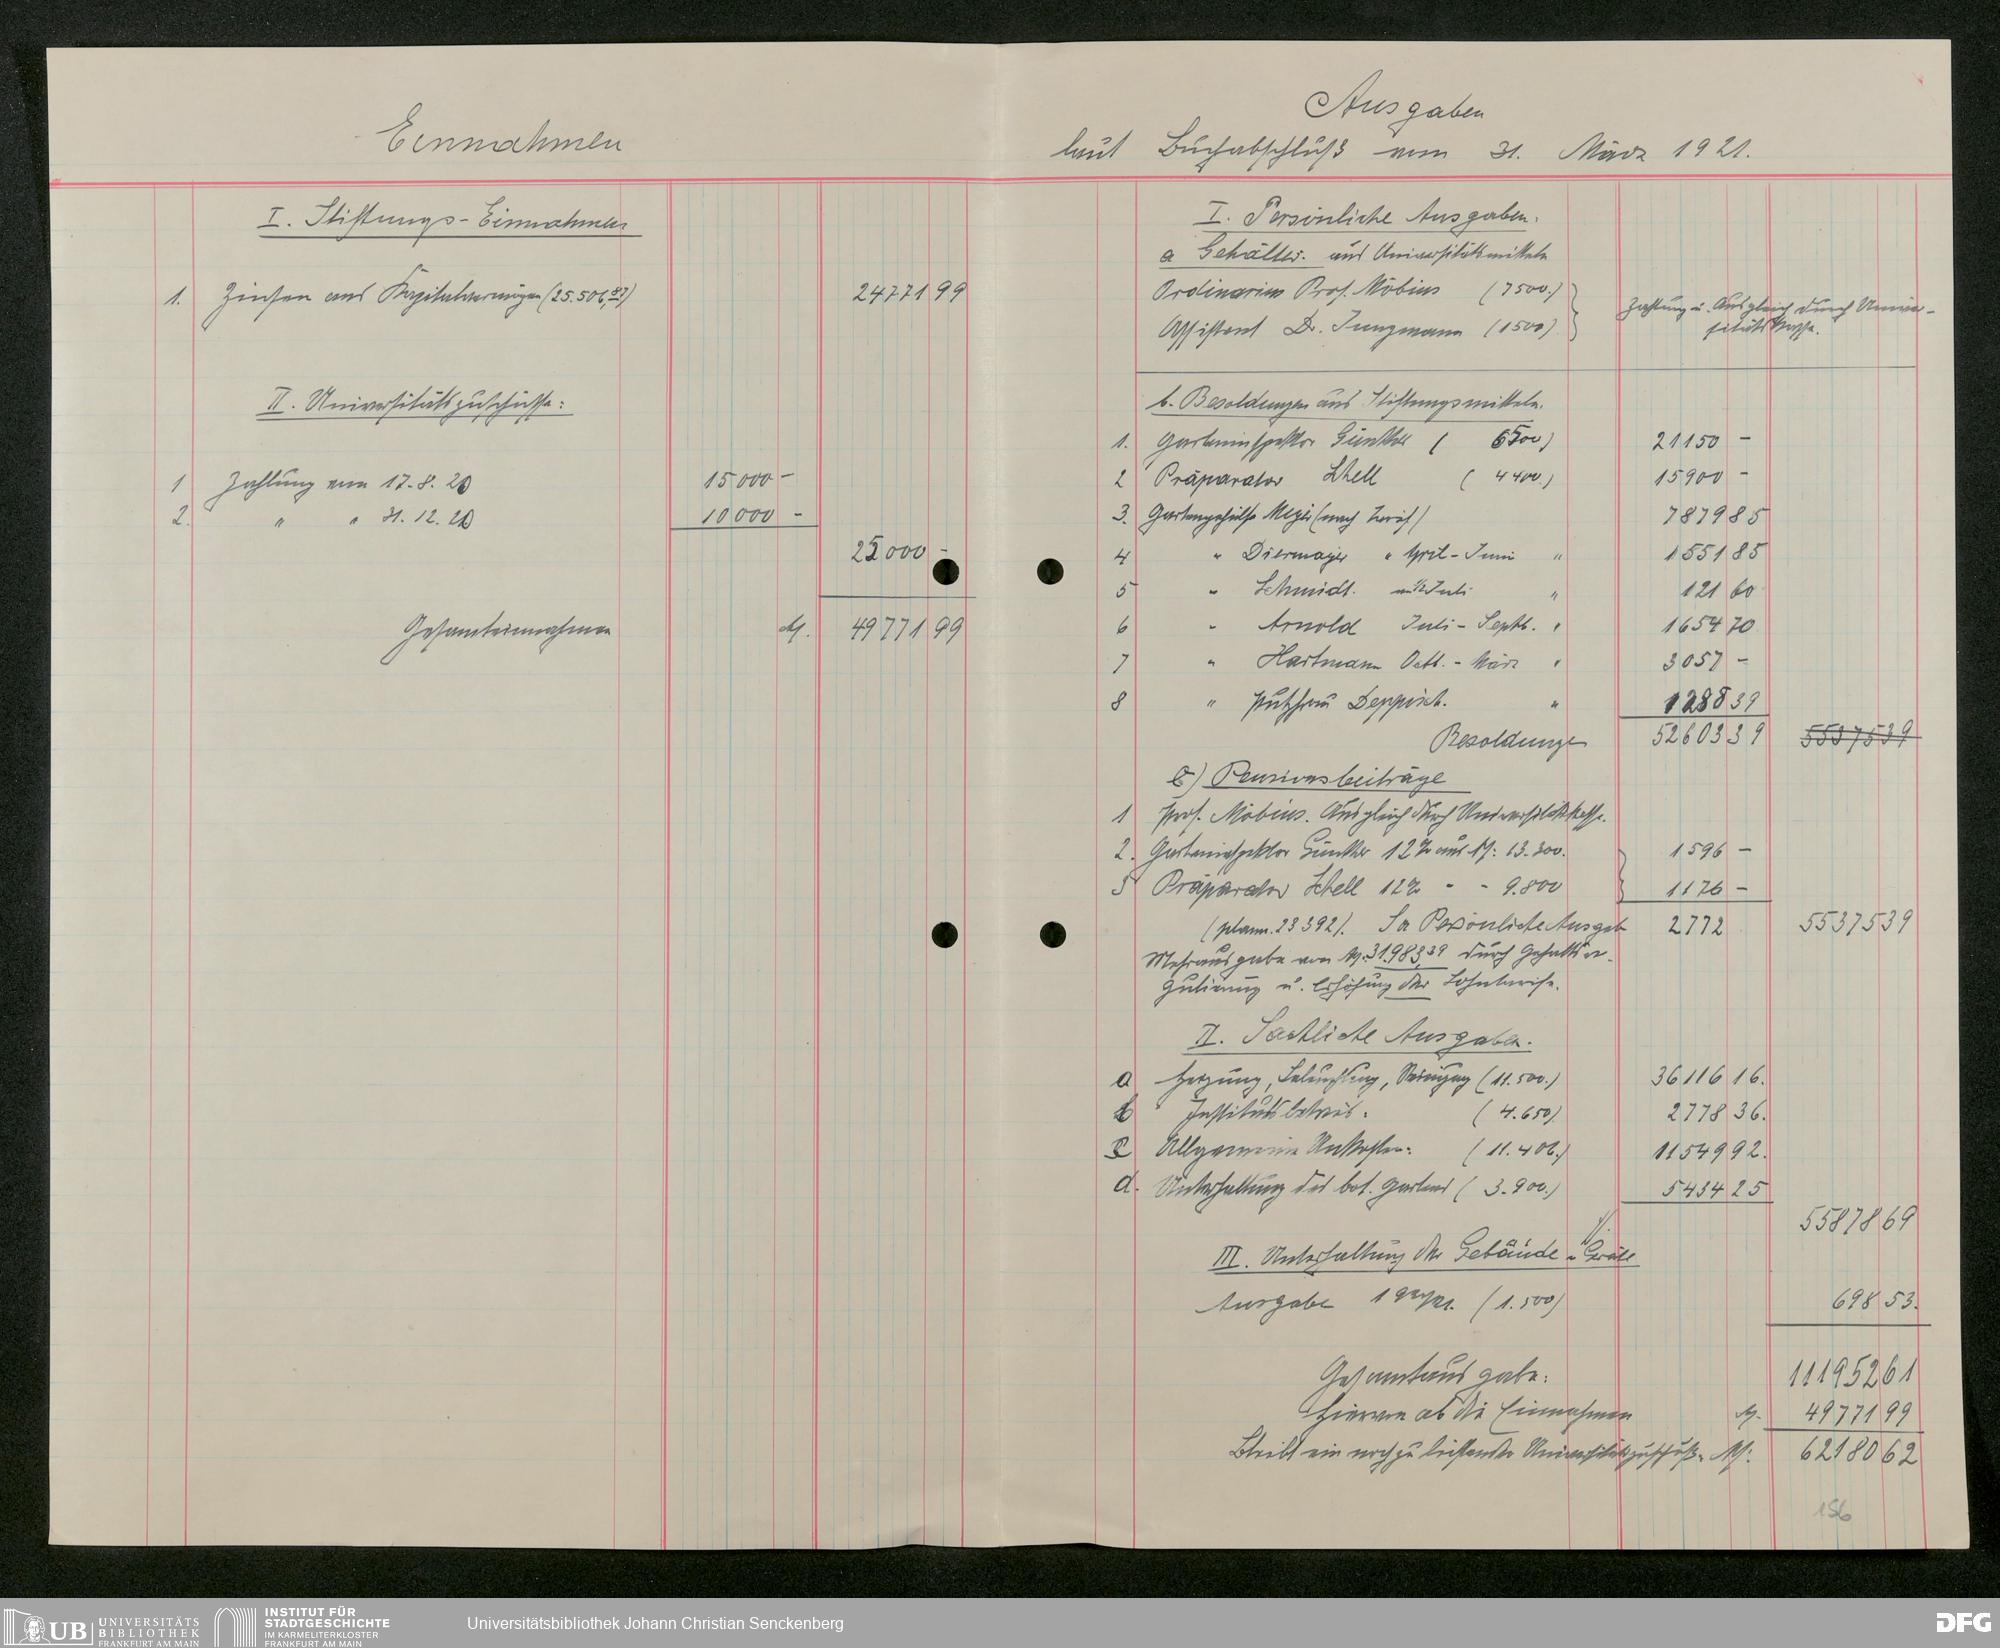 Einnahmen
I. Stiftungs-Einnahmen
1. Zinsen aus Kapitalvermögen (25.506,87) 24771 99
II. Universitätszuschüsse:
1 Zahlung vom 17.8.20 15000 –
2. " " 31.12.20 10000 –
25000 –
Gesamteinnahmen M. 49771 99
Ausgaben
laut Buchabschluß vom 31. März 1921.
I. Persönliche Ausgaben.
a Gehälter. aus Universitätsmitteln
Ordinarius Prof. Möbius (7500.)
Assistent Dr. Jungmann (1500)
Zahlung u. Ausgleich durch Univer-
sitätskasse.
b. Besoldungen aus Stiftungsmitteln.
1. Garteninspektor Günther ( 6500) 21150 –
2 Präparator Schell ( 4400.) 15900 –
3. Gartengehilfe Meyer (nach Tarif) 7879 85
4 " Diermayer " April-Juni " 1551 85
5 " Schmidt. Juli " 121 60
6 " Arnold Juli-Septb. " 1654 70
7 " Hartmann Octb.-März " 3057 –
8 " Putzfrau Deppisch. " 1288 39
Besoldungen 52603 39 55375 39
c) Pensionsbeiträge
1 Prof. Möbius. Ausgleich durch Universitätskasse.
2. Garteninspektor Günther 12% aus M: 13.300. 1596 –
3 Präparator Schell 12% " " 9.800 1176 –
(planm. 23392). Sa Persönliche Ausgab 2772 55375 39
Mehrausgabe von M. 31983,39 durch Gehaltsre-
gulierung u. Erhöhung der Lohntarife.
II. Sachliche Ausgaben.
a Heizung, Beleuchtung, Reinigung (11.500.) 36116 16.
b Institutsbetrieb. (4.650) 2778 36.
c Allgemeine Unkosten. (11.406.) 11549 92.
d. Unterhaltung des bot. Gartens (3.900.) 5434 25
55878 69
III. Unterhaltung der Gebäude u Geräte
Ausgabe (1.500) 698 53.
Gesamtausgabe: 111952 61
Hiervon ab die Einnahmen M. 49771 99
Bleibt ein noch zu leistender Universitätszuschuß. M: 62180 62
156
UB UNIVERSITÄTS
BIBLIOTHEK
FRANKFURT AM MAIN
INSTITUT FÜR
STADTGESCHICHTE
IM KARMELITERKLOSTER
FRANKFURT AM MAIN
Universitätsbibliothek Johann Christian Senckenberg
DFG